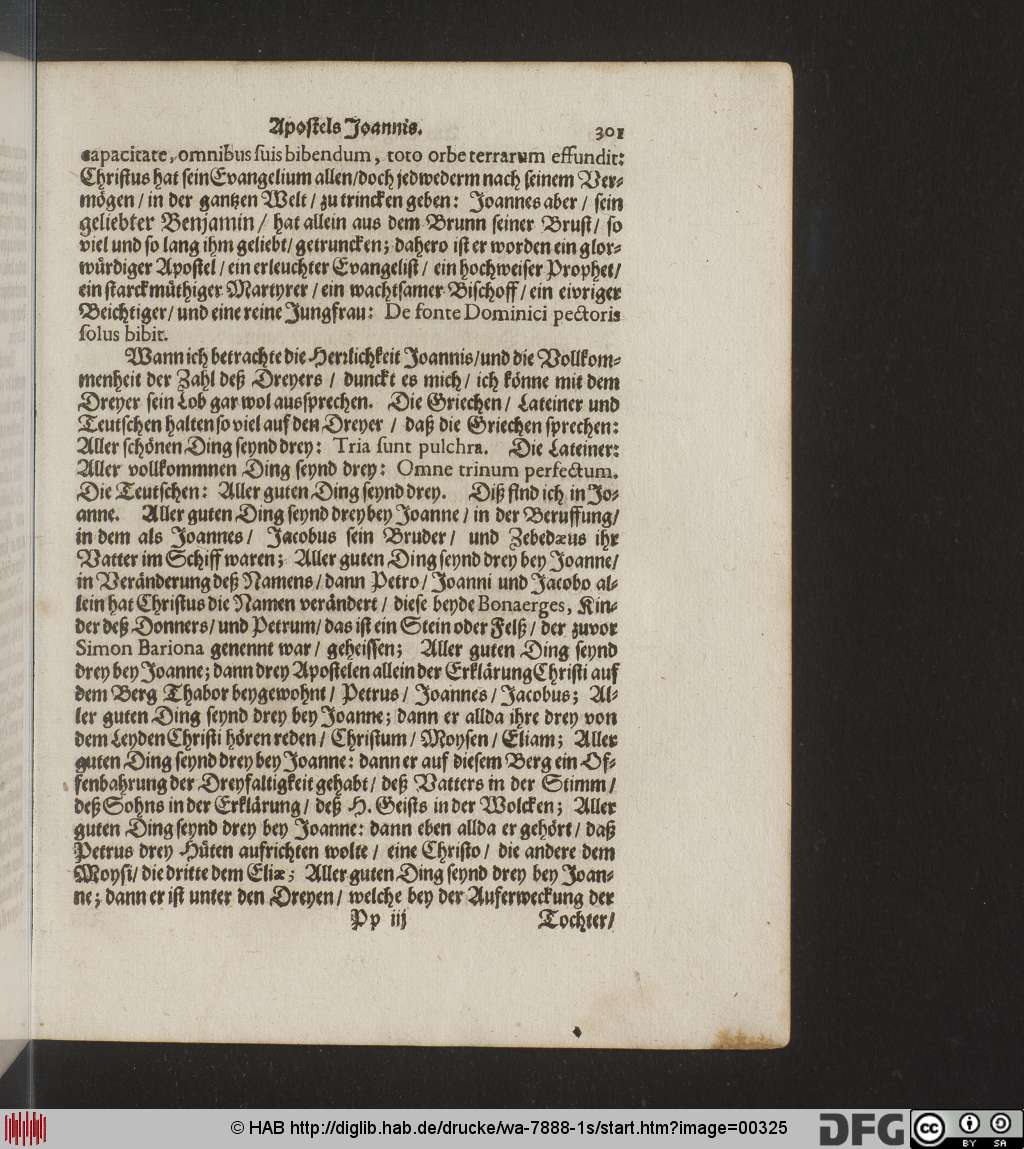 Apostels Joannis. 301
capacitate, omnibus suis bibendum, toto orbe terrarum effundit:
Christus hat sein Evangelium allen/doch jedwederm nach seinem Ver-
mögen / in der gantzen Welt / zu trincken geben: Joannes aber / sein
geliebter Benjamin / hat allein aus dem Brunn seiner Brust / so
viel und so lang ihm geliebt / getruncken; dahero ist er worden ein glor-
würdiger Apostel / ein erleuchter Evangelist / ein hochweiser Prophet /
ein starckmüthiger Martyrer / ein wachtsamer Bischoff / ein eivriger
Beichtiger / und eine reine Jungfrau: De fonte Dominici pectoris
solus bibit.
Wann ich betrachte die Herrlichkeit Joannis/und die Vollkom-
menheit der Zahl deß Dreyers / dunckt es mich / ich könne mit dem
Dreyer sein Lob gar wol aussprechen. Die Griechen / Lateiner und
Teutschen halten so viel auf den Dreyer / daß die Griechen sprechen:
Aller schönen Ding seynd drey: Tria sunt pulchra. Die Lateiner:
Aller vollkommnen Ding seynd drey: Omne trinum perfectum.
Die Teutschen: Aller guten Ding seynd drey. Diß find ich in Jo-
anne. Aller guten Ding seynd drey bey Joanne / in der Beruffung/
in dem als Joannes / Jacobus sein Bruder / und Zebedæus ihr
Vatter im Schiff waren; Aller guten Ding seynd drey bey Joanne/
in Veränderung deß Namens / dann Petro / Joanni und Jacobo al-
lein hat Christus die Namen verändert / diese beyde Bonaerges, Kin-
der deß Donners / und Petrum / das ist ein Stein oder Felß / der zuvor
Simon Bariona genennt war / geheissen; Aller guten Ding seynd
drey bey Joanne; dann drey Apostelen allein der Erklärung Christi auf
dem Berg Thabor beygewohnt / Petrus / Joannes / Jacobus; Al-
ler guten Ding seynd drey bey Joanne; dann er allda ihre drey von
dem Leyden Christi hören reden / Christum / Moysen / Eliam; Aller
guten Ding seynd drey bey Joanne: dann er auf diesem Berg ein Of-
fenbahrung der Dreyfaltigkeit gehabt / deß Vatters in der Stimm /
deß Sohns in der Erklärung / deß H. Geists in der Wolcken; Aller
guten Ding seynd drey bey Joanne: dann eben allda er gehört / daß
Petrus drey Hüten aufrichten wolte / eine Christo / die andere dem
Moysi / die dritte dem Eliæ; Aller guten Ding seynd drey bey Joan-
ne; dann er ist unter den Dreyen / welche bey der Auferweckung der
Pp iij Tochter/
© HAB http://diglib.hab.de/drucke/wa-7888-1s/start.htm?image=00325
DFG
cc BY SA